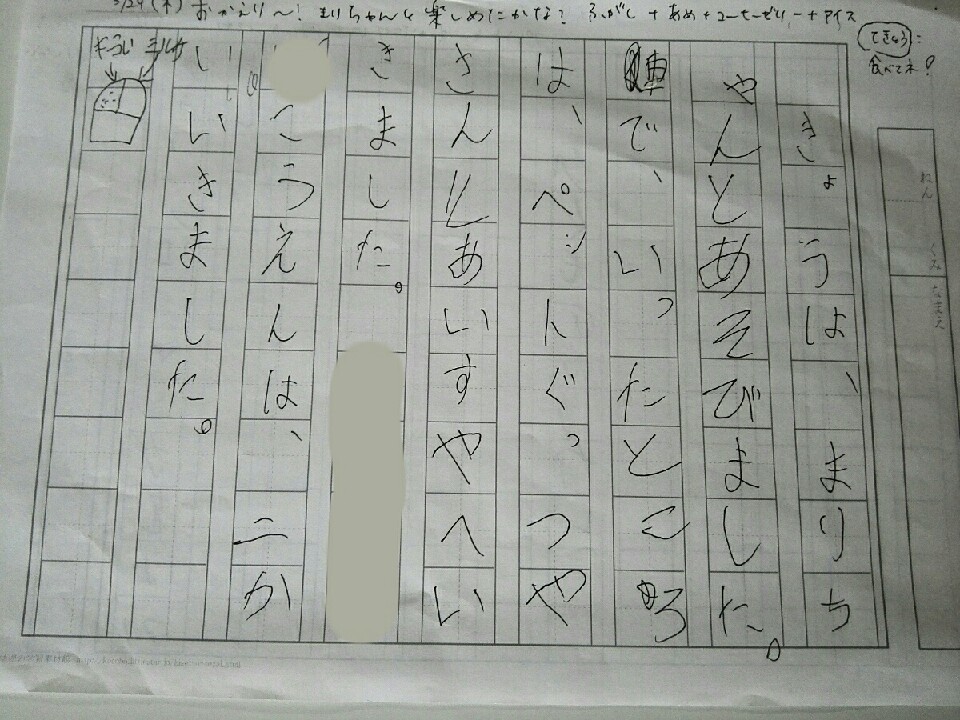 おかえり〜! まりちゃんと楽しめたかな? ふがし+あめ+コーヒーゼリー+アイス
食べてネ!
ねん くみ
なまえ
きょうは、まりち
やんとあそびました。
車で、いったところ
は、ペットぐっつや
さんとあいすやへい
きました。
こうえんは、二か
いいきました。
ミルク